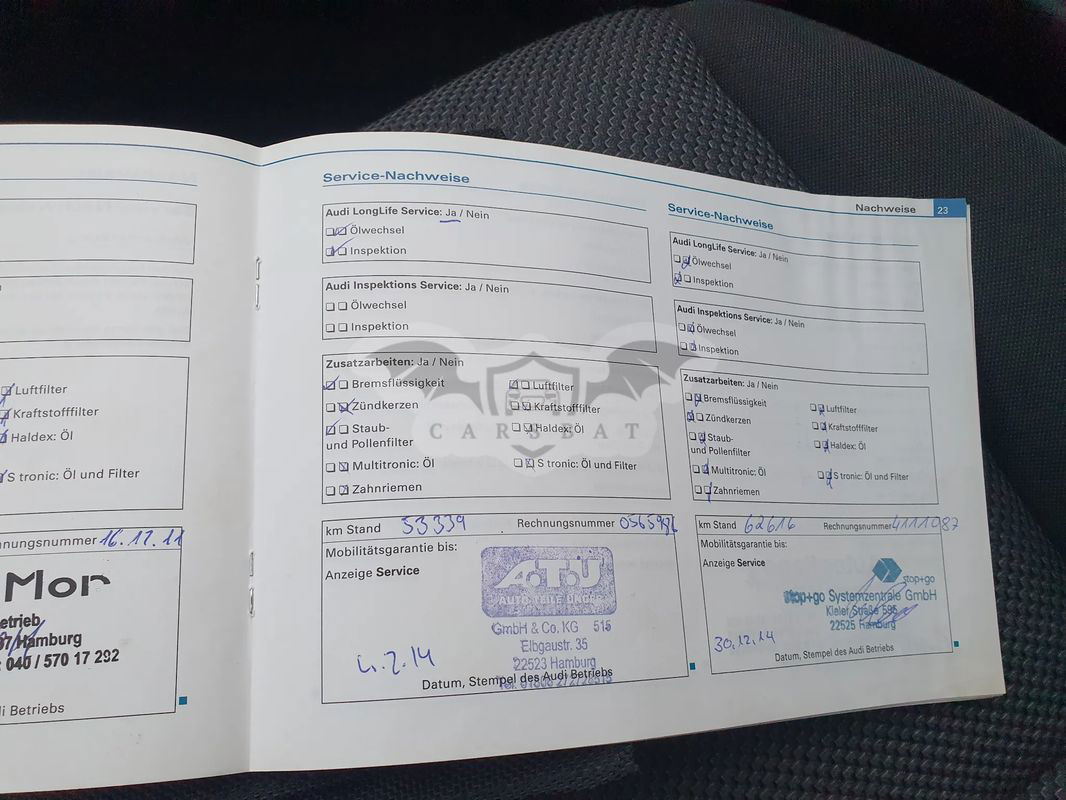 Luftfilter
Kraftstofffilter
Haldex: Öl
S tronic: Öl und Filter
nungsnummer 16.12.11
Mor
etrieb
Hamburg
040 / 570 17 292
di Betriebs
Service-Nachweise
Audi LongLife Service: Ja / Nein
Ölwechsel
Inspektion
Audi Inspektions Service: Ja / Nein
Ölwechsel
Inspektion
Zusatzarbeiten: Ja / Nein
Bremsflüssigkeit
Luftfilter
Zündkerzen
Kraftstofffilter
Staub-
und Pollenfilter
Haldex: Öl
Multitronic: Öl
S tronic: Öl und Filter
Zahnriemen
km Stand 53339 Rechnungsnummer
Mobilitätsgarantie bis:
Anzeige Service
A.T.U
AUTO TEILE UNGER
GmbH & Co. KG 515
Elbgaustr. 35
22523 Hamburg
4.2.14
Datum, Stempel des Audi Betriebs
Nachweise 23
Service-Nachweise
Audi LongLife Service: Ja / Nein
Ölwechsel
Inspektion
Audi Inspektions Service: Ja / Nein
Ölwechsel
Inspektion
Zusatzarbeiten: Ja / Nein
Bremsflüssigkeit
Luftfilter
Zündkerzen
Kraftstofffilter
Staub-
und Pollenfilter
Haldex: Öl
Multitronic: Öl
S tronic: Öl und Filter
Zahnriemen
km Stand 62616 Rechnungsnummer 4111087
Mobilitätsgarantie bis:
Anzeige Service
stop+go
stop+go Systemzentrale GmbH
Kieler Straße 595
22525 Hamburg
30.12.14
Datum, Stempel des Audi Betriebs
CARSBAT